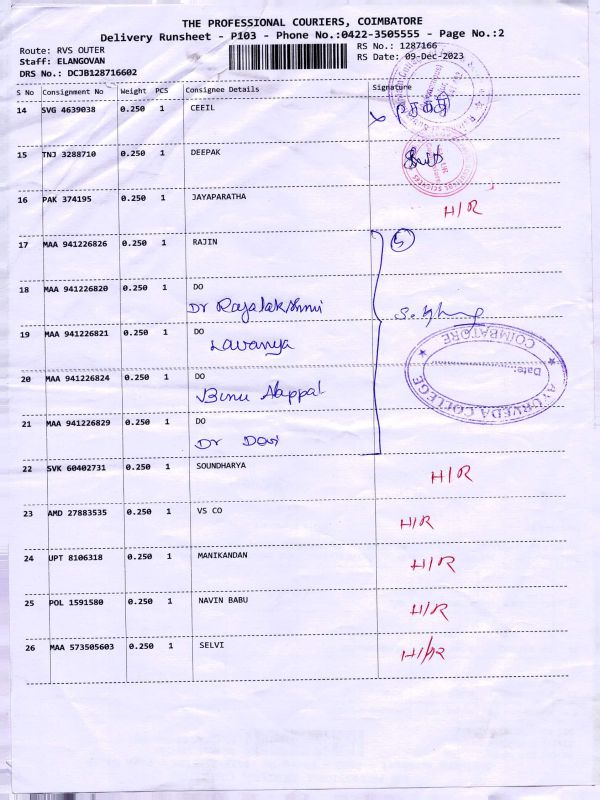 THE PROFESSIONAL COURIERS, COIMBATORE
Delivery Runsheet - P103 - Phone No.:0422-3505555 - Page No.:2
Route: RVS OUTER RS No.: 1287166
Staff: ELANGOVAN RS Date: 09-Dec-2023
DRS No.: DCJB128716602
S No Consignment No Weight PCS Consignee Details Signature
14 SVG 4639038 0.250 1 CEEIL
15 TNJ 3288710 0.250 1 DEEPAK
16 PAK 374195 0.250 1 JAYAPARATHA H/R
17 MAA 941226826 0.250 1 RAJIN 5
18 MAA 941226820 0.250 1 DO
Dr Rajalakshmi
19 MAA 941226821 0.250 1 DO
Lavanya
COIMBATORE
Date:
AYURVEDA COLLEGE
20 MAA 941226824 0.250 1 DO
Binu Alappat
21 MAA 941226829 0.250 1 DO
Dr Devi
22 SVK 60402731 0.250 1 SOUNDHARYA H/R
23 AMD 27883535 0.250 1 VS CO H/R
24 UPT 8106318 0.250 1 MANIKANDAN H/R
25 POL 1591580 0.250 1 NAVIN BABU H/R
26 MAA 573505603 0.250 1 SELVI H/R